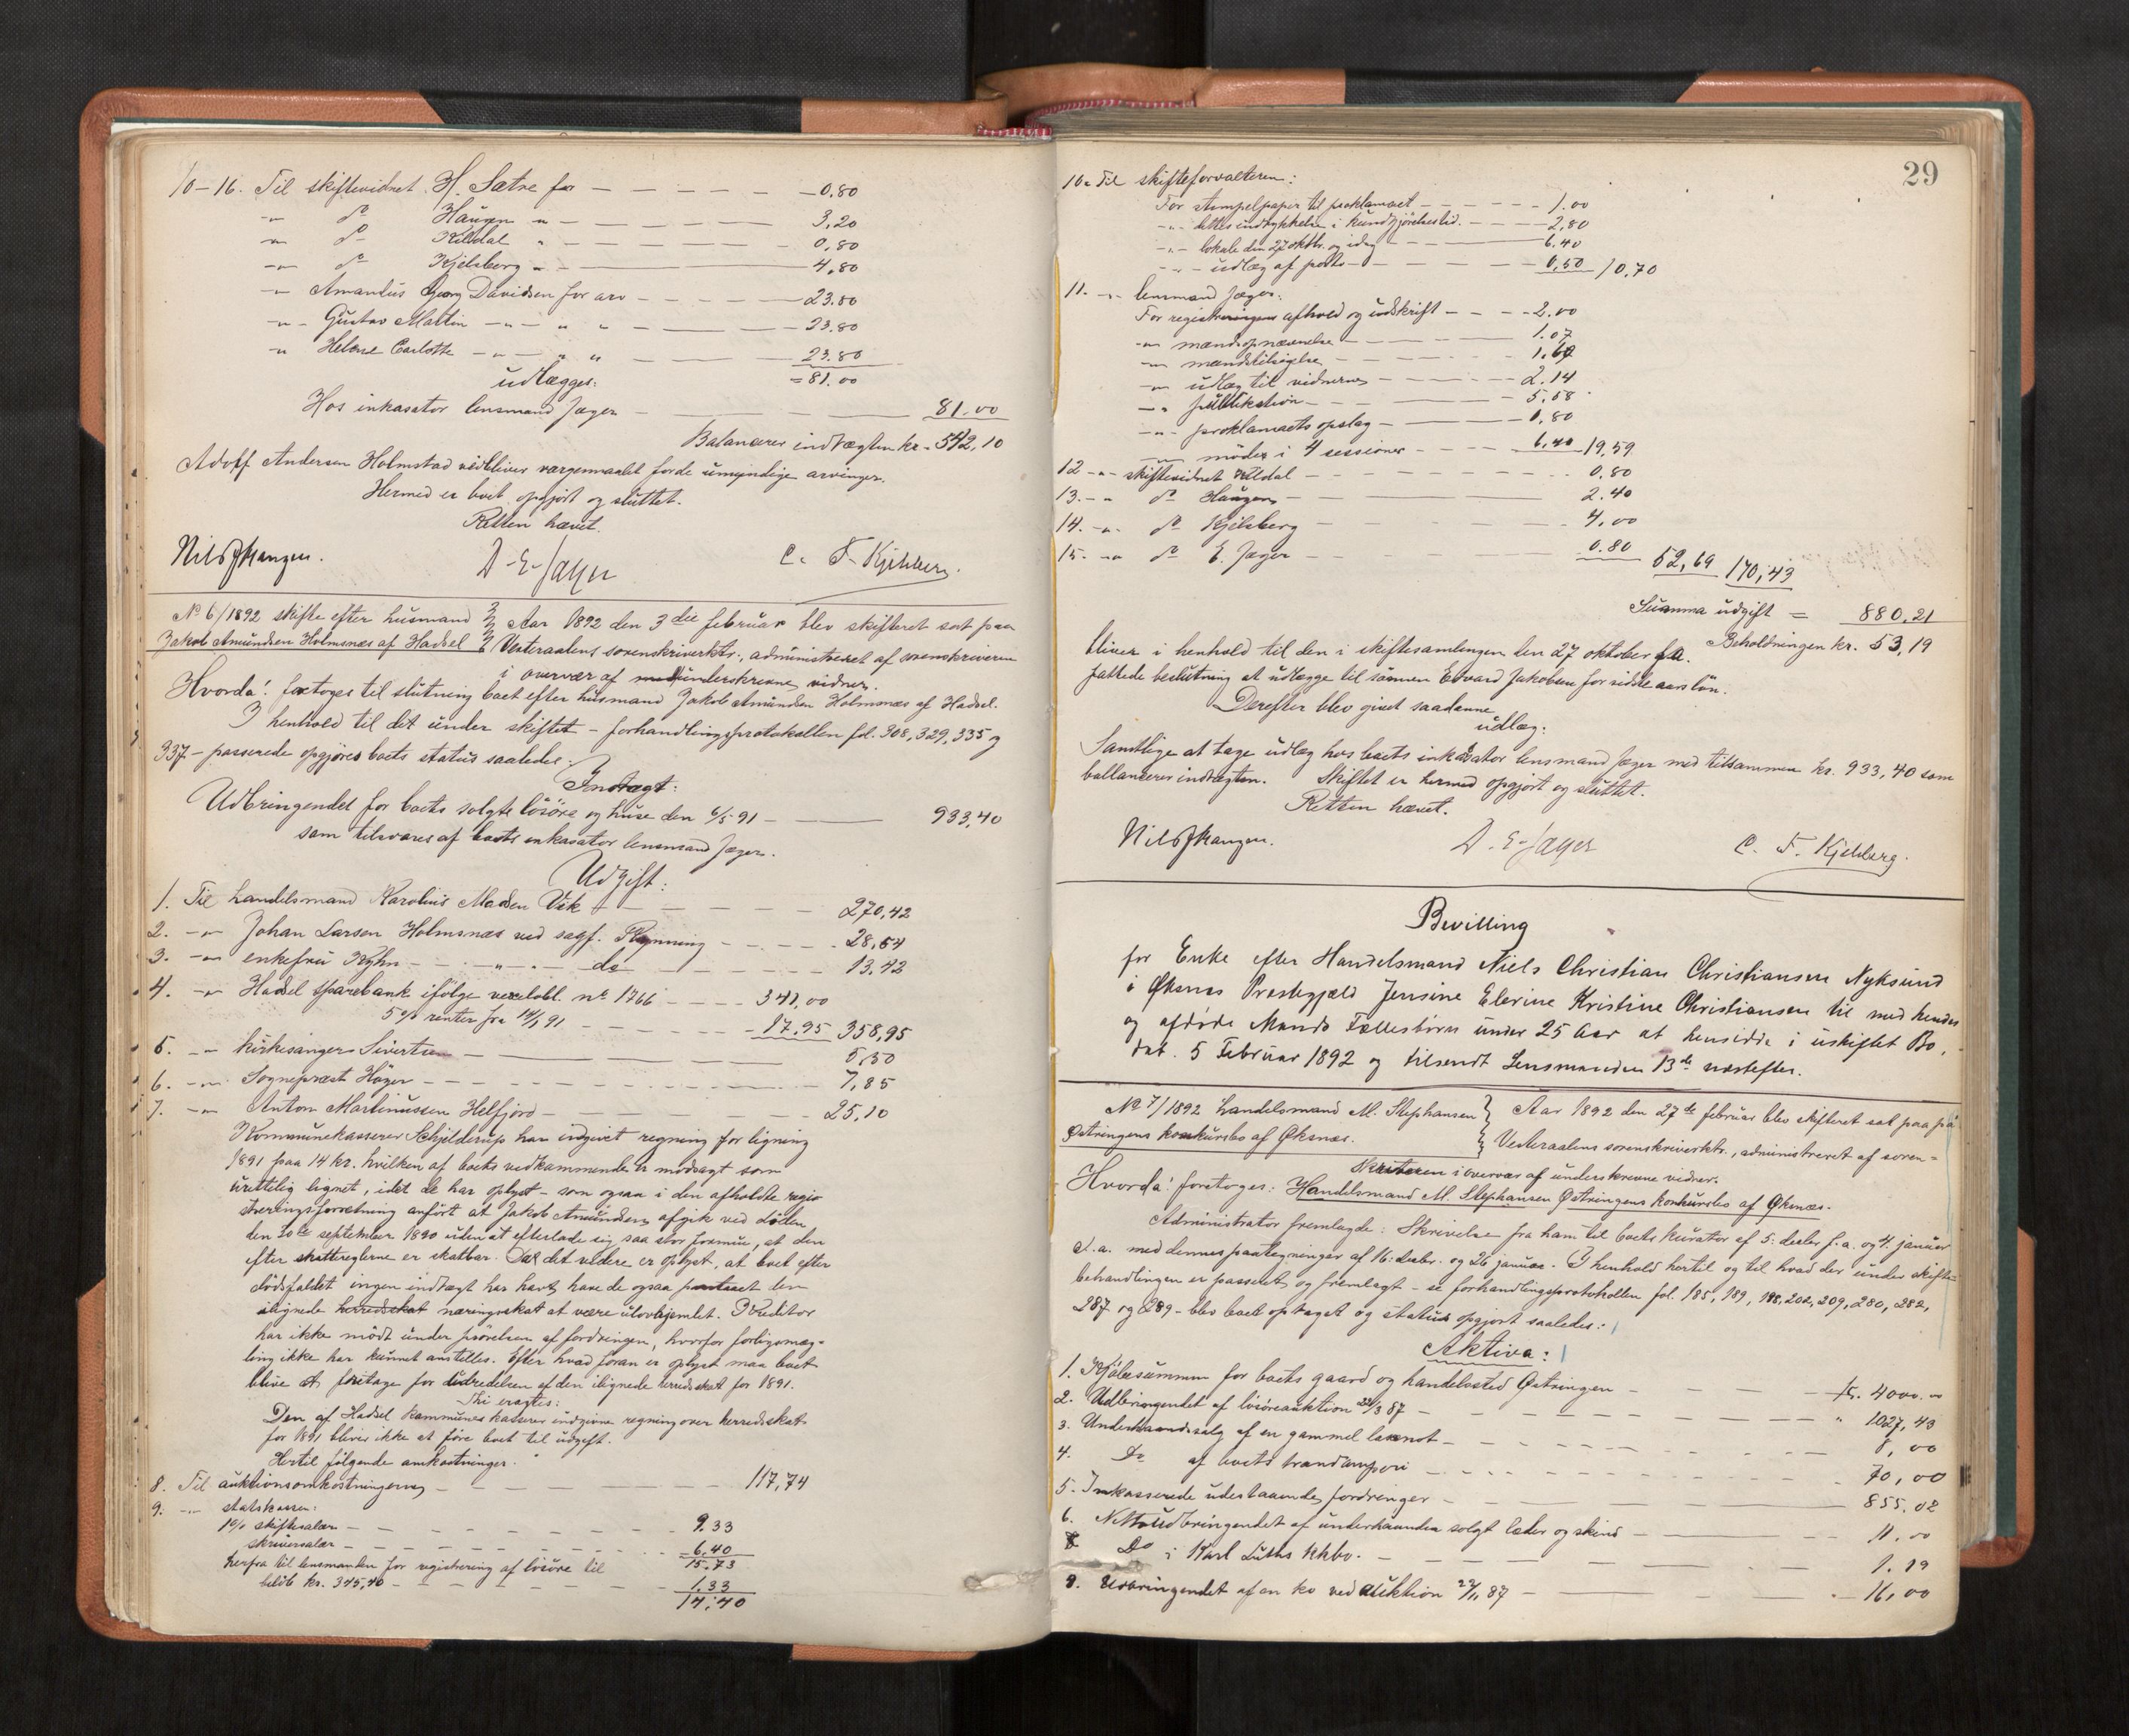 10-16. Til skiftevidnet H. Sætre for — 0.80
-"- do Haugen " — 3,20
-"- do Kildal " — 0,80
-"- do Kjelsberg " — 4,80
-"- Amandus Georg Davidsen for arv — 23.80
-"- Gustav Martin -"- " " — 23.80
-"- Helene Carlotte -"- " " — 23.80
udlægges: = 81.00
Hos inkasator lensmand Jæger — 81.00
Balancerer indtægten kr. 542,10
Adolf Andersen Holmstad vedbliver værgemaalet for de umyndige arvinger.
Hermed er boet opgjort og sluttet.
Retten hævet.
Nils J Hangen. D. E. Jæger C. F. Kjelsberg.
No 6/1892 skifte efter husmand
Jakob Amundsen Holmsnæs af Hadsel
Aar 1892 den 3die februar blev skifteret sat paa
Vesteraalens sorenskriverktr., administreret af sorenskriveren
i overvær af underskrevne vidner.
Hvorda! foretoges til slutning boet efter husmand Jakob Amundsen Holmsnæs af Hadsel.
I henhold til det under skiftet - forhandlingsprotokollen fol. 308, 329, 335 og
337 - passerede opgjøres boets status saaledes:
Indtægt:
Udbringendet for boets solgte løsøre og huse den 6/5 91 — 933,40
som tilsvares af boets inkasator lensmand Jæger.
Udgift:
1. Til handelsmand Karolius Madsen Vik — 270,42
2. -"- Johan Larsen Holmsnæs ved sagf. Rynning — 28,64
3. -"- enkefru Kyhn — " — do — 13.42
4. -"- Hadsel sparebank ifølge vexelobl. no 1766 — 341,00
5% renter fra 14/1 91 — 17.95 358,95
5. -"- kirkesanger Sivertsen — 5,50
6. -"- Sogneprest Høyer — 7,85
7. -"- Anton Martinussen Helfjord — 25,10
Kommunekasserer Schjelderup har indgivet regning for ligning
1891 paa 14 kr. hvilken af boets vedkommende er modsagt som
urettelig lignet, idet de har oplyst - som ogsaa i den afholdte regi-
streringsforretning anført at Jakob Amundsen afgik ved døden
den 30te september 1890 uden at efterlade sig saa stor formue, at den
efter skattereglerne er skatbar. Da det videre er oplyst, at boet efter
dødsfaldet ingen indtægt har havt, have de ogsaa den
ilignede herredsskat næringsskat at være ulovhjemlet. Kreditor
har ikke mødt under prøvelsen af fordringen, hvorfor forligsmæg-
ling ikke har kunnet anstilles. Efter hvad foran er oplyst maa boet
blive at fritage for udredelsen af den ilignede herredsskat for 1891.
Thi eragtes:
Den af Hadsel kommunes kasserer indgivne regning over herredsskat
for 1891 bliver ikke at føre boet til udgift.
Hertil følgende omkostninger:
8. Til auktionsomkostningerne — 117,74
9. -"- statskassen:
1% skiftesalær — 9.33
skriversalær — 6,40
15.73
herfra til lensmanden for registrering af løsøre til
beløb kr. 345,40 — 1.33
14,40
29
10. Til skifteforvalteren:
For stempelpaper til proklamaet — 1.00
-"- dettes indrykkelse i Kundgjørelsestid. — 2,80
-"- lokale den 27 oktbr. og idag — 6.40
-"- udlæg af porto — 0,50 10,70
11. -"- lensmand Jæger:
For registreringens afhold og udskrift — 2.00
-"- mandsopnævnelse — 1.07
-"- mandstilsigelse — 1,60
-"- udlæg til vidnerne — 2.14
-"- publikation — 5,58
-"- proklamaets opslag — 0,80
-"- møder i 4 sessioner — 6,40 19,59
12 -"- skiftevidnet Kildal — 0.80
13. -"- do Haugen — 2.40
14. -"- do Kjelsberg — 4,00
15. -"- do E. Jæger — 0.80 52,69 170,43
Summa udgift = 880,21
Beholdningen kr. 53,19
bliver i henhold til den i skiftesamlingen den 27 oktober f.a.
fattede beslutning at udlægge til sønnen Edvard Jakobsen for sidste aars løn.
Derefter blev givet saadanne
udlæg:
Samtlige at tage udlæg hos boets inkasator lensmand Jæger med tilsammen kr. 933,40 som
ballancerer indtægten. Skiftet er hermed opgjort og sluttet.
Retten hævet.
Nils J Hangen. D. E. Jæger C. F. Kjelsberg.
Bevilling
for Enke efter Handelsmand Niels Christian Christiansen Nyksund
i Øksnes Præstegjæld Jensine Elerine Kristine Christiansen til med hendes
og afdøde Mands Fællesbørn under 25 Aar at hensidde i uskiftet Bo,
dat. 5 Februar 1892 og tilsendt Lensmanden 13de næstefter.
No 7/1892 handelsmand M. Stephansen
Østringens konkursbo af Øksnæs.
Aar 1892 den 27de februar blev skifteret sat paa på
Vesteraalens sorenskriverktr., administreret af soren=
skriveren i overvær af underskrevne vidner.
Hvorda! foretoges: Handelsmand M. Stephansen Østringens konkursbo af Øksnæs.
Administrator fremlagde: Skrivelse fra ham til boets kurator af 5: decbr f.a. og 4. januar
d.a. med dennes paategninger af 16: decbr. og 26 januar. I henhold hertil og til hvad der under skifte-
behandlingen er passeret og fremlagt - se forhandlingsprotokollen fol. 185, 189, 198, 202, 209, 280, 282,
287 og 289 - blev boets optaget og status opgjort saaledes:
Aktiva:
1. Kjøbesummen for boets gaard og handelssted Østringen — kr. 4000. "
2. Udbringendet af løsøreauktion 22/3 87 — " 1027,43
3. Underhaandssalg af en gammel laxnot — 8,00
4. Do af boets trandamperi — 70,00
5. Inkasserede udestaaende fordringer — 855.02
6. Nettoudbringendet af underhaanden solgt læder og skind — 11.00
Do i Karl Luths kkbo. — 1.19
8. Udbringendet af en ko ved auktion 22/11 87 — 16,00